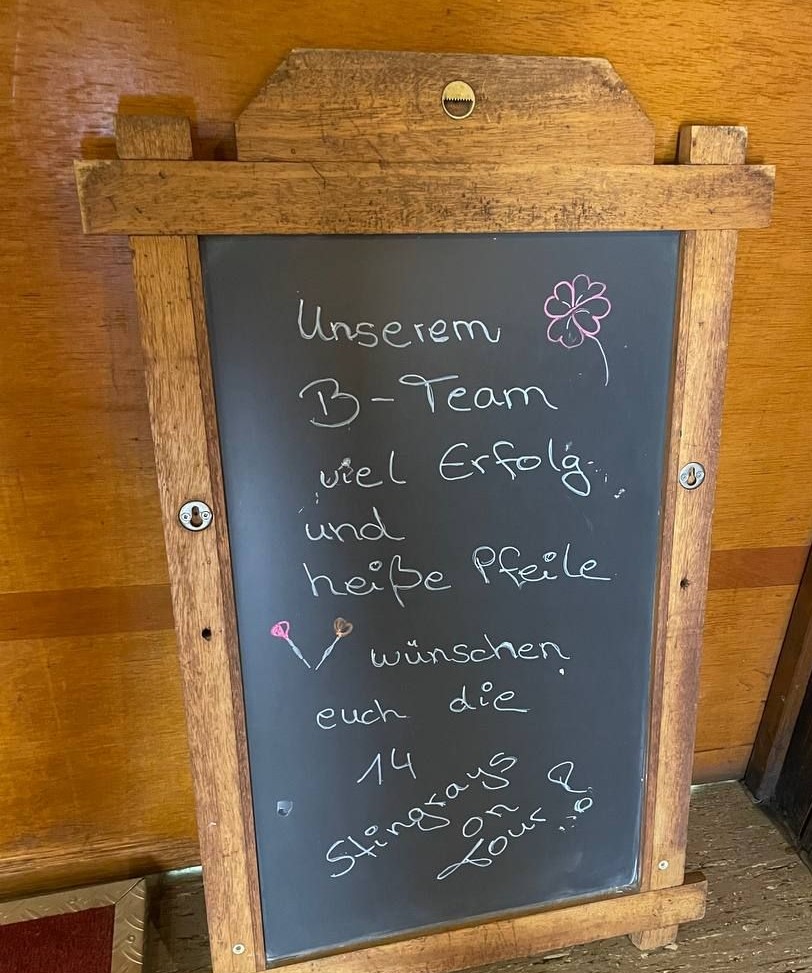 Unserem
B-Team
viel Erfolg
und
heiße Pfeile
wünschen
euch die
14
Stingrays
on
tour